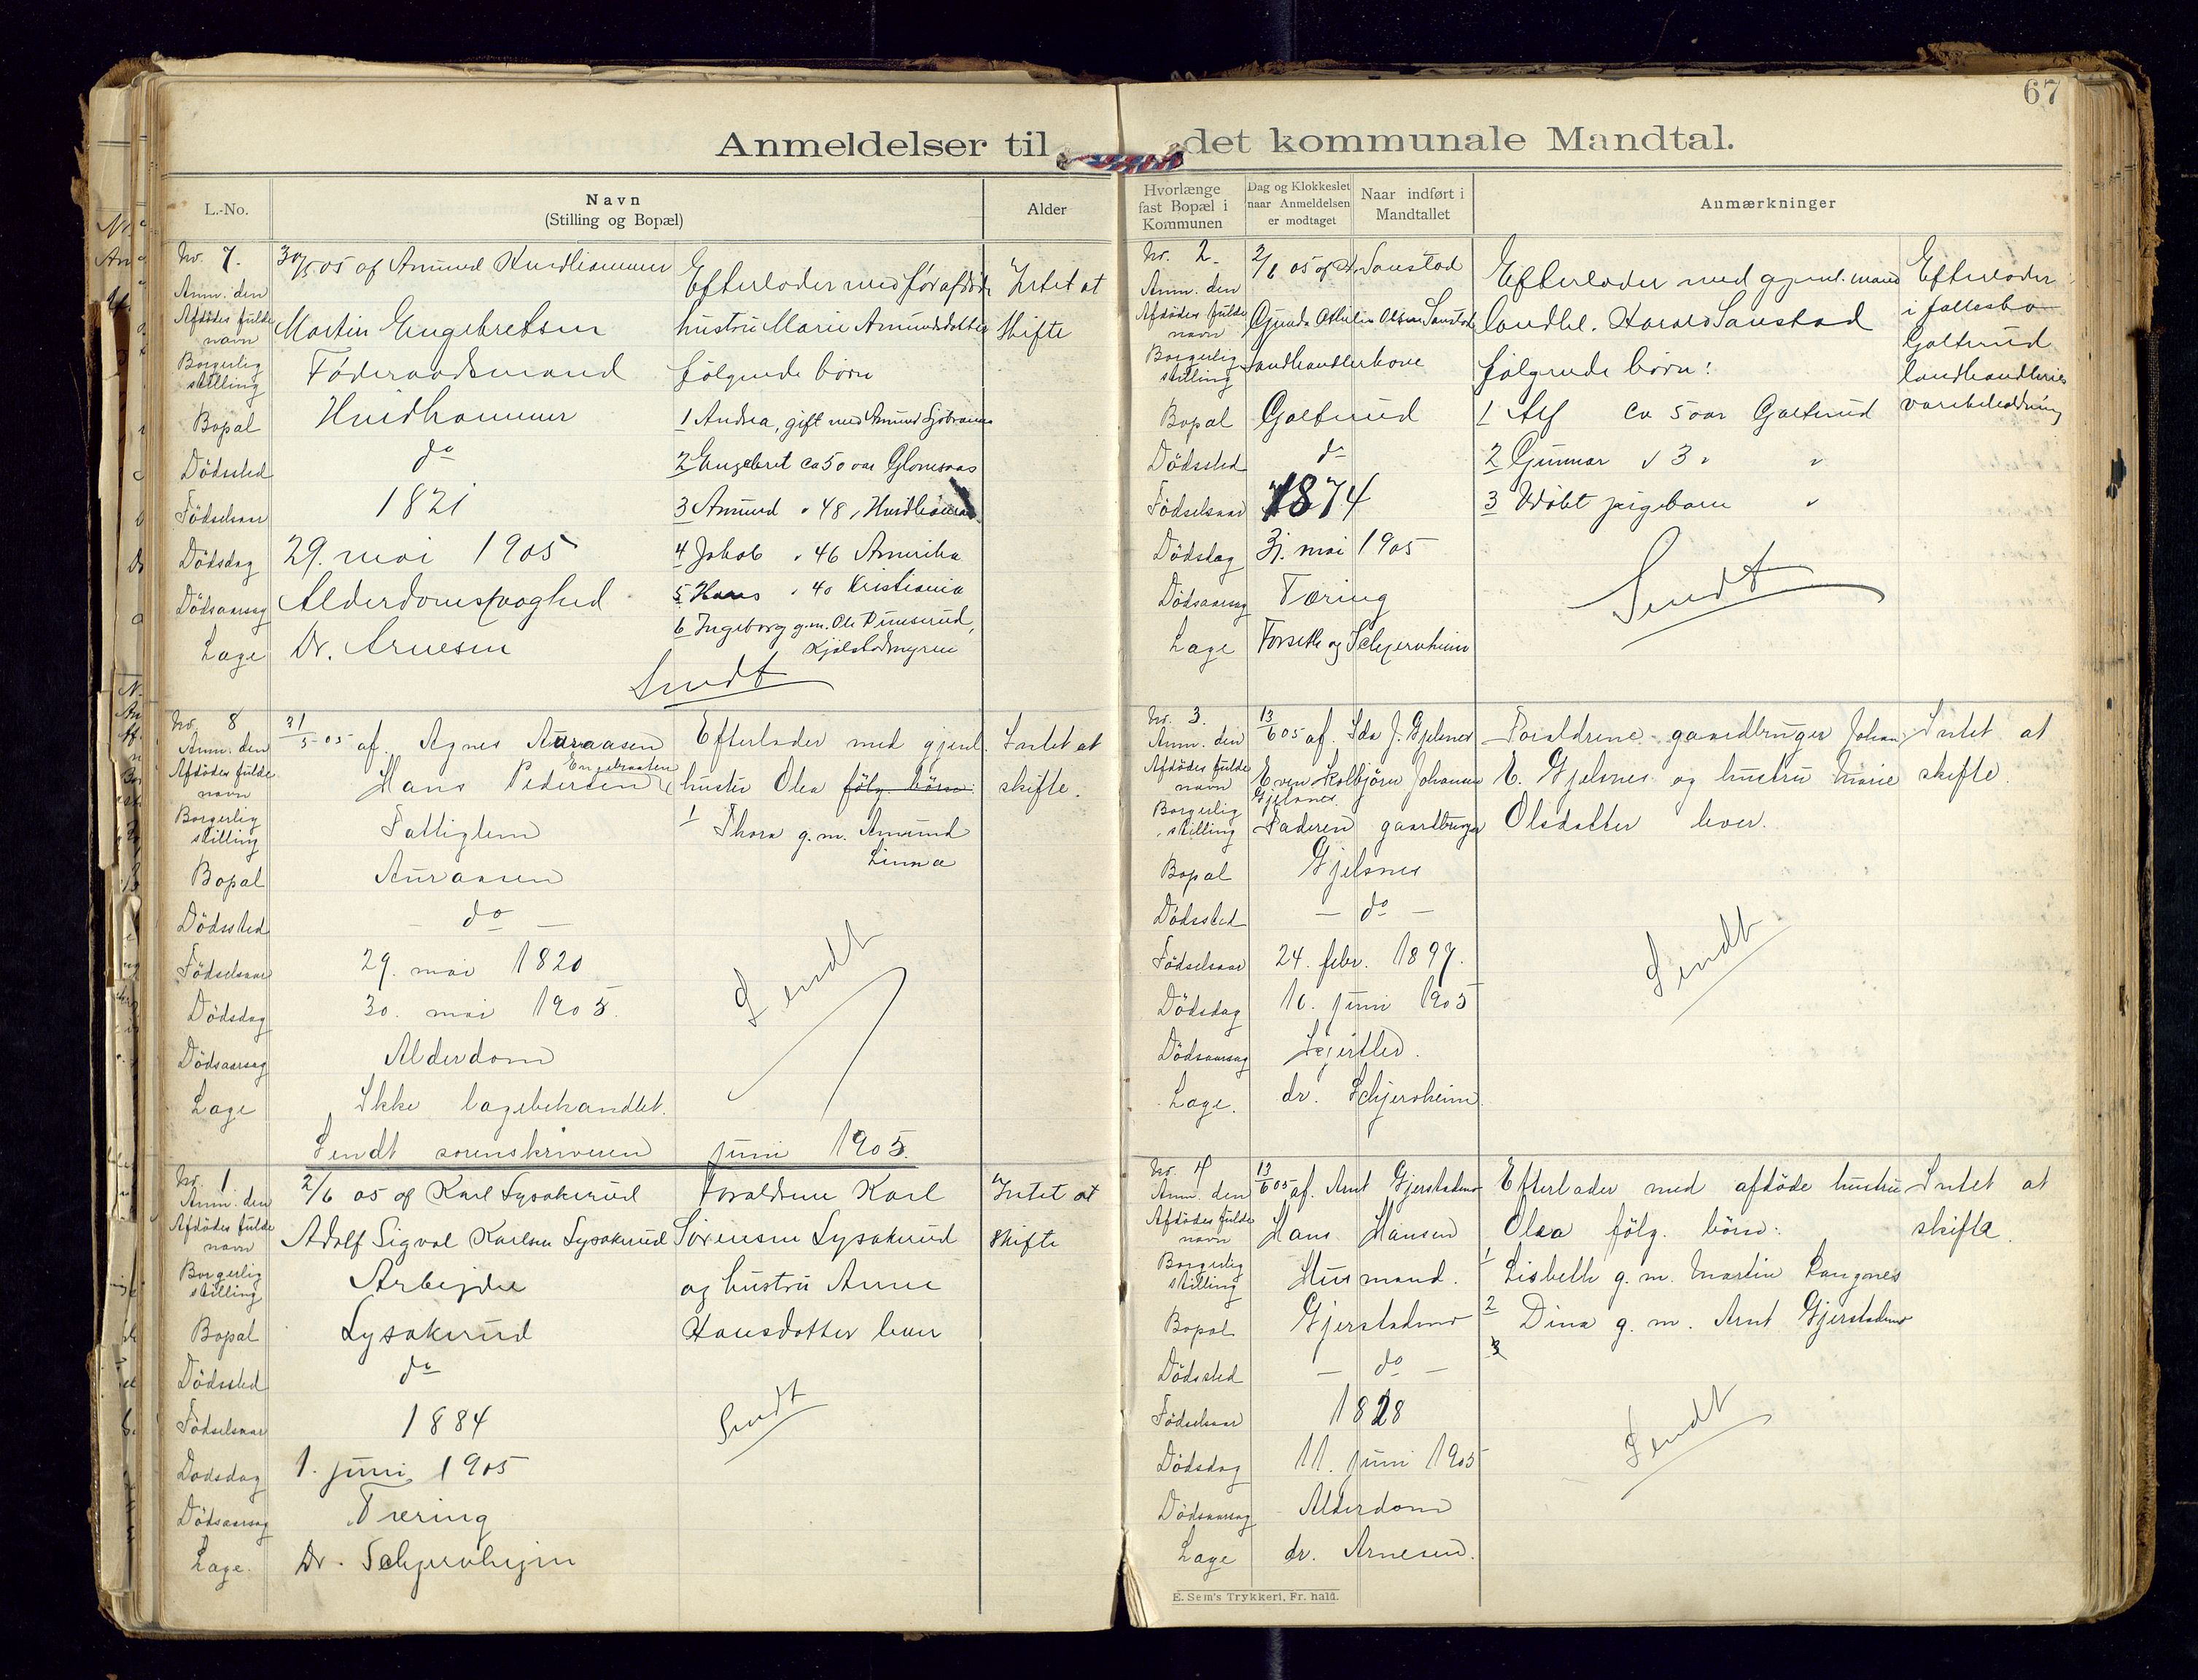 67
Anmeldelser til det kommunale Mandtal.
L.-No.
Navn
(Stilling og Bopæl)
Alder
Hvorlænge
fast Bopæl i
Kommunen
Dag og Klokkeslet
naar Anmeldelsen
er modtaget
Naar indført i
Mandtallet
Anmærkninger
No. 7.
Anm. den 30/5 05 af Amund Huidhammer
Afdödes fulde navn Martin Engebretsen
Borgerlig stilling Föderaadsmand
Bopæl Huidhammer
Dödssted do
Födselsaar 1821
Dödsdag 29. mai 1905
Dödsaarsag Alderdomssvaghed
Læge Dr. Arnesen
Efterlader med før afdöde
hustru Marie Amundsdatter
følgende børn
1 Andrea, gift med Amund
2 Engebret ca 50 aar Glomsaas
3 Amund " 48 " Huidhammer
4 Jakob " 46 Amerika
5 Hans " 40 Kristiania
6 Ingeborg g.m. Ole
Sendt
Intet at
skifte
No. 8
Anm. den 31/5-05 af. Agnes Auraasen
Engebraaten
Afdödes fulde navn Hans Pedersen
Borgerlig stilling Fattiglem
Bopæl Auraasen
Dödssted — do —
Födselsaar 29. mai 1820
Dödsdag 30. mai 1905.
Dödsaarsag Alderdom
Læge Ikke lægebehandlet.
Efterlader med gjenl.
hustru Olea følg. börn:
1 Thora g.m. Amund
Linna
Sendt
Intet at
skifte.
Sendt sorenskriveren juni 1905.
No. 1
Anm. den 2/6 05 af Karl Lysakerud
Afdödes fulde navn Adolf Sigval Karlsen Lysakerud
Borgerlig stilling Arbejder
Bopæl Lysakerud
Dödssted do
Födselsaar 1884
Dödsdag 1. juni 1905
Dödsaarsag Tæring
Læge Dr. Schjervhejm
Forældrene Karl
Sørensen Lysakerud
og hustru Anne
Hansdatter lever
Sendt
Intet at
skifte
No. 2.
Anm. den 2/6 05 af Sanstad
Afdödes fulde navn Gunda Othilie Olsen Sanstad
Borgerlig stilling Landhandlerkone
Bopæl Galterud
Dödssted do
Födselsaar 1874
Dödsdag 31. mai 1905
Dödsaarsag Tæring
Læge Forseth og Schjervheim
Efterlader med gjenl. mand
landhl. Harald Sanstad
følgende børn:
1 Alf ca 5 aar Galterud
2 Gunnar " 3 " "
3 Udöbt pigebarn "
Sendt
Efterlader
i fællesbo
Galterud
landhandleries
varebeholdning
No. 3.
Anm. den 13/6 05 af. Ida J. Gjelsnes
Afdödes fulde navn Even Kolbjörn Johansen
Gjelsnes.
Borgerlig stilling Faderen gaardbruger
Bopæl Gjelsnes
Dödssted — do —
Födselsaar 24. febr. 1897.
Dödsdag 10. juni 1905
Dödsaarsag
Læge. dr. Schjersheim
Forældrene gaardbruger Johan
E. Gjelsnes og hustru Marie
Olsdatter lever.
Sendt
Intet at
skifte.
No. 4
Anm. den 13/6 05 af. Arnt Gjerstadmo
Afdödes fulde navn Hans Hansen
Borgerlig stilling Husmand.
Bopæl Gjerstadmo
Dödssted — do —
Födselsaar 1828
Dödsdag 11. juni 1905
Dödsaarsag Alderdom
Læge dr. Arnesen.
Efterlader med afdöde hustru
Olea følg. børn:
1 Lisbeth g.m. Martin Rangnes
2 Dina g.m. Arnt Gjerstadmo
3
Sendt
Intet at
skifte.
E. Sem's Trykkeri, Fr. hald.